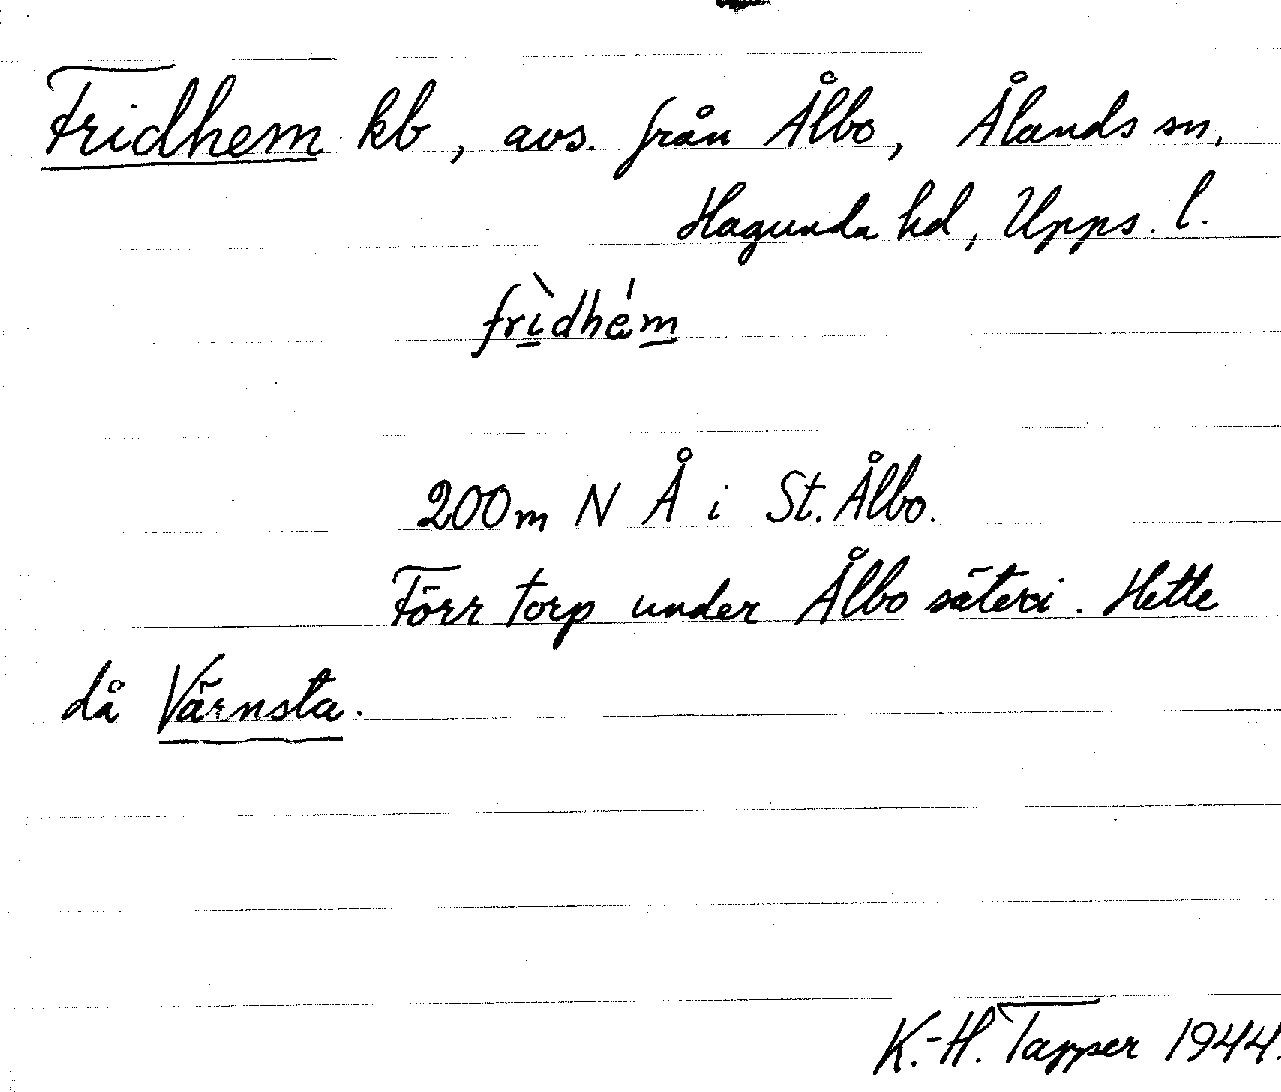 Fridhem kb, avs. från Ålbo, Ålands sn,
Hagunda hd, Upps. l.
frìdhém
200m N Å i St. Ålbo.
Förr torp under Ålbo säteri. Hette
då Värnsta.
K.-H. Tapper 1944.